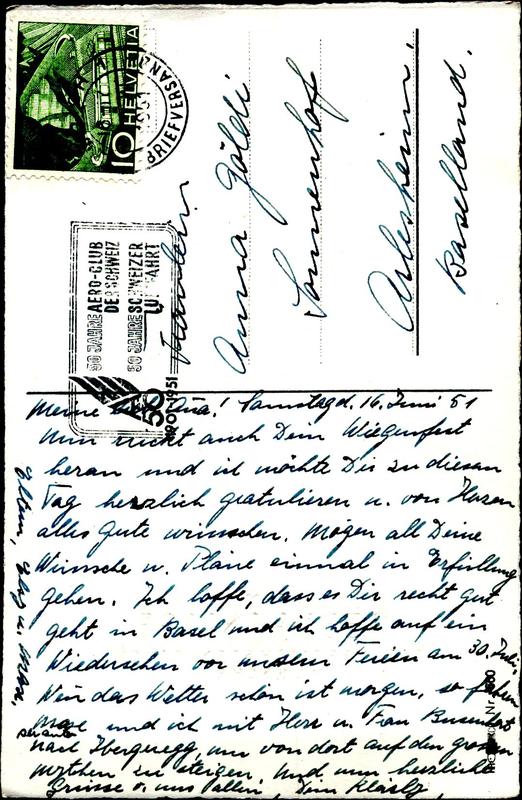 HELVETIA
10
BRIEFVERSAND
50 JAHRE AERO-CLUB
DER SCHWEIZ
50 JAHRE SCHWEIZER
LUFTFAHRT
50
1901 1951
Fräulein
Anna Göldi
Sonnenhof
Arlesheim,
Baselland.
Meine Ana! Samstag d. 16. Juni 51
Nun rückt auch Dein Wiegenfest
heran und ich möchte Dir zu diesem
Tag herzlich gratulieren u. von Herzen
alles Gute wünschen. Mögen all Deine
Wünsche u. Pläne einmal in Erfüllung
gehen. Ich hoffe, dass es Dir recht gut
geht in Basel und ich hoffe auf ein
Wiedersehen vor unsern Ferien am 30. Juli,
Wenn das Wetter schön ist morgen, so fahren
und ich mit Herr u. Frau
nach Ibergeregg, um von dort auf den grossen
Mythen zu steigen. Und nun herzliche
Grüsse v. uns allen, Dein
Eltern,